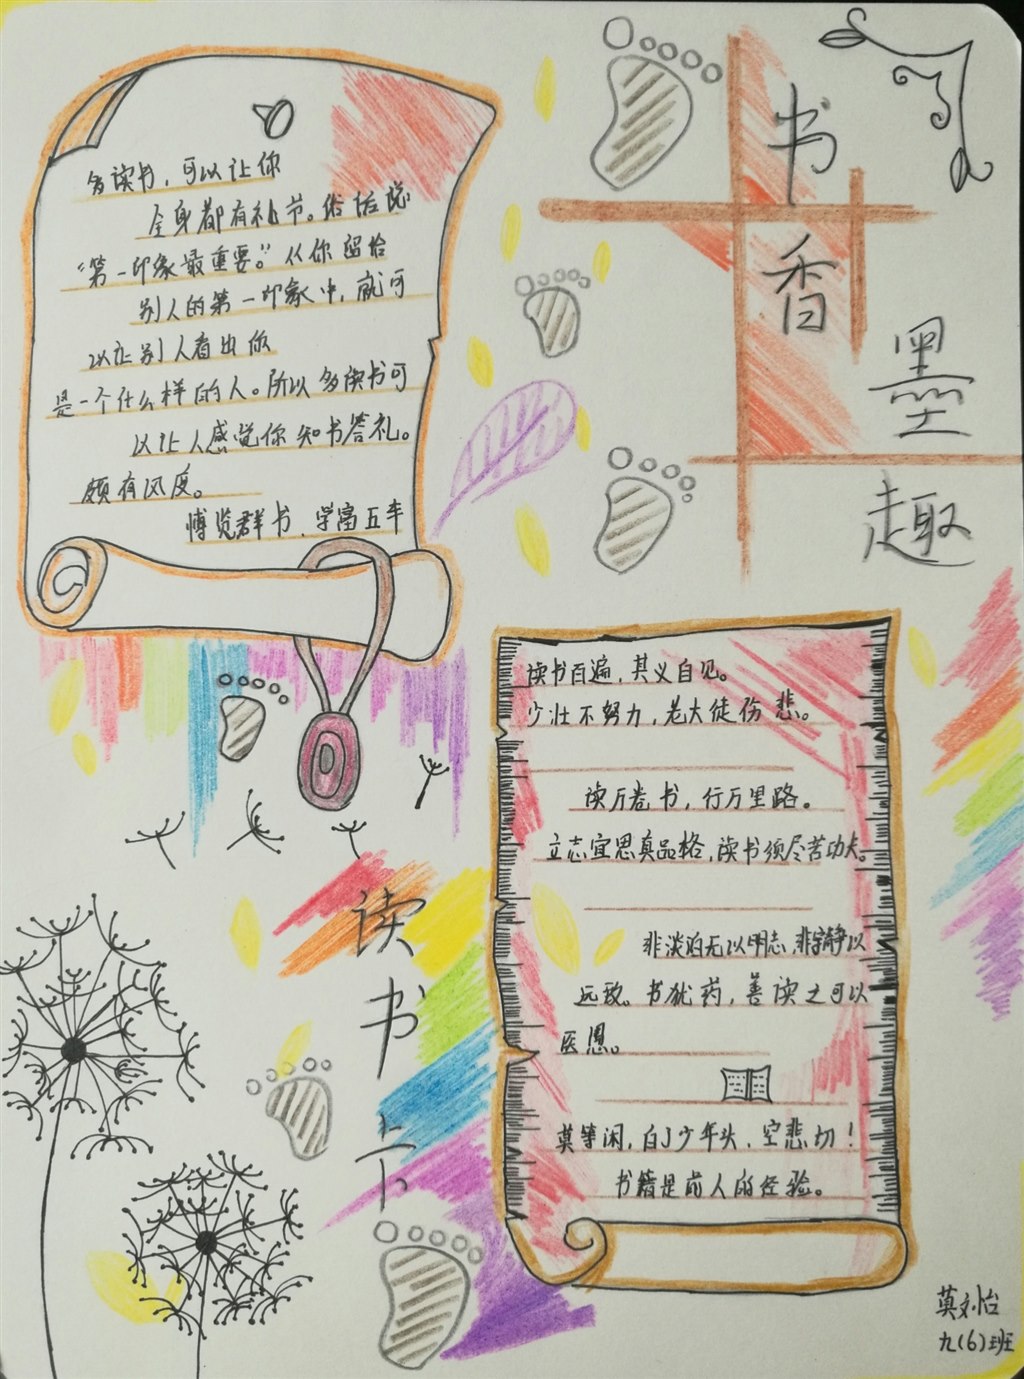 书香墨趣
多读书，可以让你
全身都有礼节。俗话说
“第一印象最重要。”从你留给
别人的第一印象中，就可
以让别人看出你
是一个什么样的人。所以多读书可
以让人感觉你知书答礼。
颇有风度。
博览群书、学富五车
读书百遍，其义自见。
少壮不努力，老大徒伤悲。
读万卷书，行万里路。
立志宜思真品格，读书须尽苦功夫。
非淡泊无以明志，非宁静以
远致。书犹药，善读之可以
医愚。
莫等闲，白了少年头，空悲切！
书籍是前人的经验。
读书卡
莫刘怡
九(6)班